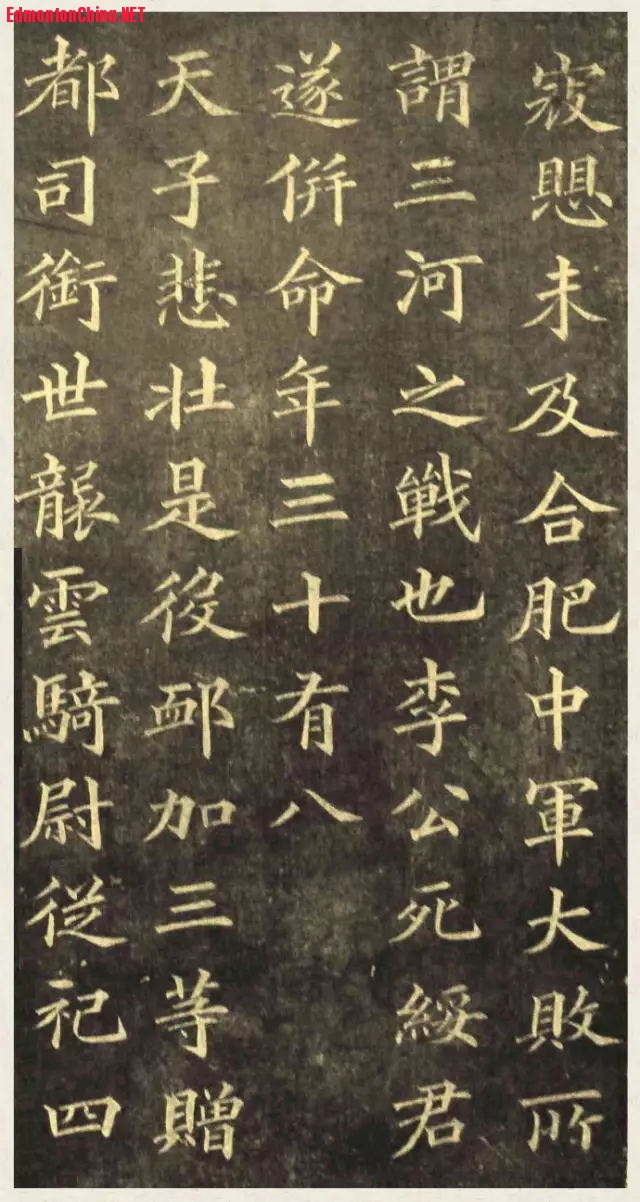 EdmontonChina.NET
寇愳未及合肥中軍大敗所
謂三河之戰也李公死綏君
遂併命年三十有八
天子悲壯是役卹加三等贈
都司銜世襲雲騎尉從祀四